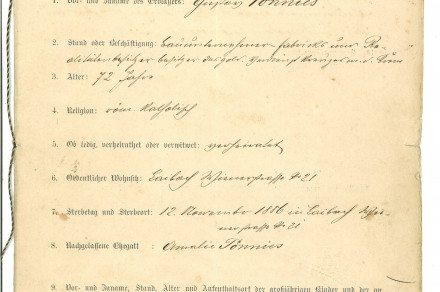 1. Vor- und Zuname des Erblassers: Gustav Tönnies
2. Stand oder Beschäftigung: Bauunternehmer Fabriks und Re-
alitätenbesitzer Besitzer des gold.
3. Alter: 72 Jahre
4. Religion: röm Katholisch
5. Ob ledig, verheirathet oder verwitwet: verheiratet
6. Ordentlicher Wohnsitz: Laibach Wienerstrasse № 21
7. Sterbetag und Sterbeort: 12. November 1886 in Laibach Wie-
nerstrasse № 21
8. Nachgelassene Ehegatt : Amalie Tönnies
9. Vor- und Zuname, Stand, Alter und Aufenthaltsort der großjährigen Kinder und der an